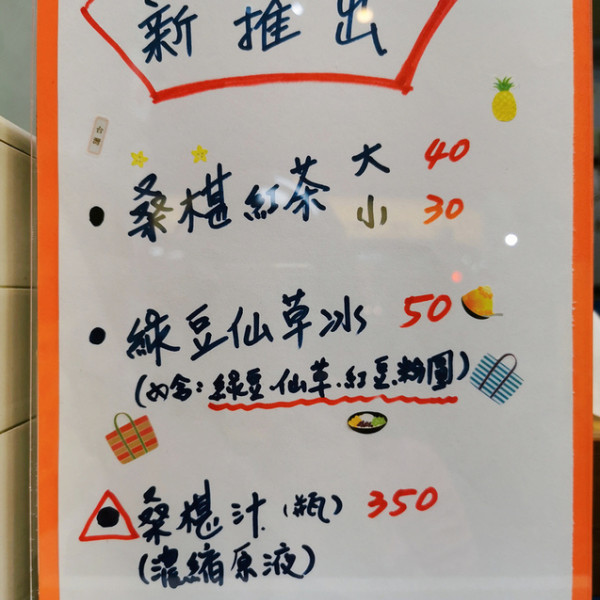 新推出
台灣
桑椹紅茶 大 40
小 30
綠豆仙草冰 50
(內含:綠豆.仙草.紅豆.粉圓)
桑椹汁(瓶) 350
(濃縮原液)